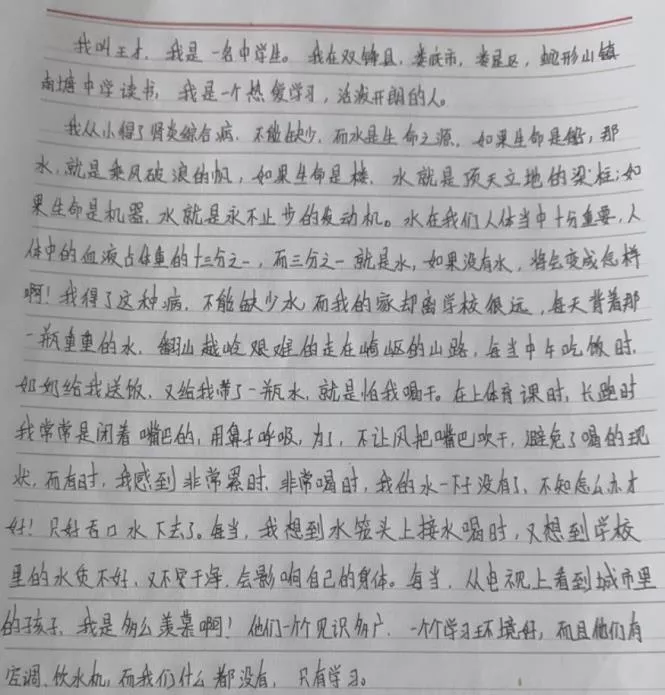 我叫王才，我是一名中学生。我在双锋县，娄底市，娄星区，蛇形山镇
南塘中学读书，我是一个热爱学习，活泼开朗的人。
我从小得了肾炎综合病，不能缺少，而水是生命之源，如果生命是船，那
水，就是乘风破浪的帆，如果生命是楼，水就是顶天立地的梁柱；如
果生命是机器，水就是永不止步的发动机。水在我们人体当中十分重要，人
体中的血液占体重的十三分之一，而三分之一就是水，如果没有水，将会变成怎样
啊！我得了这种病，不能缺少水，而我的家却离学校很远，每天背着那
一瓶重重的水，翻山越岭艰难的走在崎岖的山路，每当中午吃饭时，
奶奶给我送饭，又给我带了一瓶水，就是怕我喝干。在上体育课时，长跑时
我常常是闭着嘴巴的，用鼻子呼吸，为了，不让风把嘴巴吹干，避免了喝的现
状，而有时，我感到非常累时，非常喝时，我的水一下子没有了，不知怎么办才
好！只好吞口水下去了。每当，我想到水笼头上接水喝时，又想到学校
里的水质不好，又不干净，会影响自己的身体。每当，从电视上看到城市里
的孩子，我是多么羡慕啊！他们一个个见识多广，一个个学习环境好，而且他们有
空调、饮水机，而我们什么都没有，只有学习。